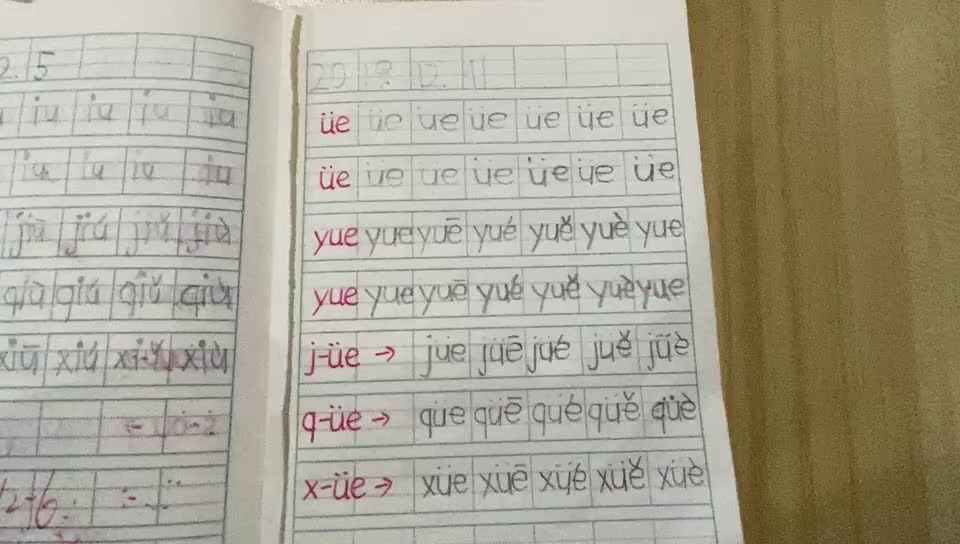 2.5
iu iu iu iu
iu iu iu iu
jiū jiú jiǔ jiù
qiū qiú qiǔ qiù
xiū xiú xiǔ xiù
20 12. 11
üe üe üe üe üe üe üe
üe üe üe üe üe üe üe
yue yue yuē yué yuě yuè yue
yue yue yuē yué yuě yuè yue
j-üe → jüe jüē jüé jüě jüè
q-üe → qüe qüē qüé qüě qüè
x-üe → xüe xüē xüé xüě xüè